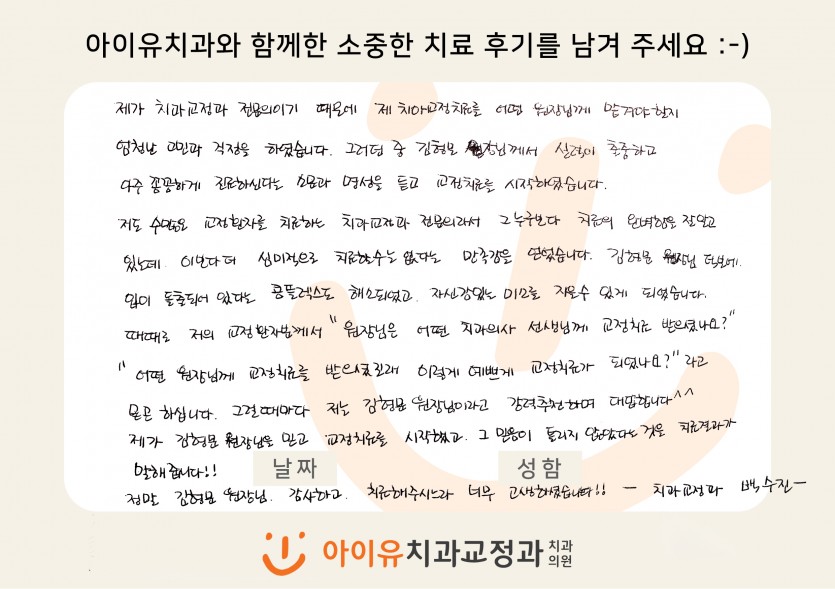 아이유치과와 함께한 소중한 치료 후기를 남겨 주세요 :-)
제가 치과교정과 전문의이기 때문에 제 치아교정치료를 어떤 원장님께 맡겨야할지
엄청난 고민과 걱정을 하였습니다. 그러던 중 김형모 원장님께서 실력이 출중하고
아주 꼼꼼하게 진료하신다는 소문과 명성을 듣고 교정치료를 시작하였습니다.
저도 수많은 교정환자를 치료하는 치과교정과 전문의라서 그 누구보다 치료의 방향을 잘 알고
있는데. 이보다 더 심미적으로 치료할 수는 없다는 만족감을 얻었습니다. 김형모 원장님 덕분에.
입이 돌출되어 있다는 콤플렉스도 해소되었고. 자신감있는 미소를 지을수 있게 되었습니다.
때때로 저의 교정환자분께서 "원장님은 어떤 치과의사 선생님께 교정치료 받으셨나요?"
"어떤 원장님께 교정치료를 받으셨길래 이렇게 예쁘게 교정치료가 되었나요?" 라고
묻곤 하십니다. 그럴때마다 저는 김형모 원장님이라고 강력추천하며 대답합니다^^
제가 김형모 원장님을 믿고 교정치료를 시작했고. 그 믿음이 틀리지 않았다는 것을 치료결과가
말해줍니다!!
날짜 성함
정말 김형모 원장님. 감사하고. 치료해주시느라 너무 고생하셨습니다!! - 치과교정과 백수진-
아이유치과교정과 치과의원